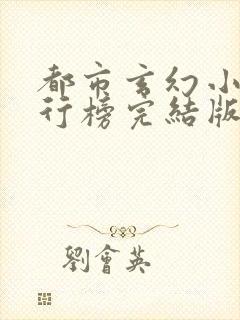 都市玄幻小
行榜完結版
劉會英